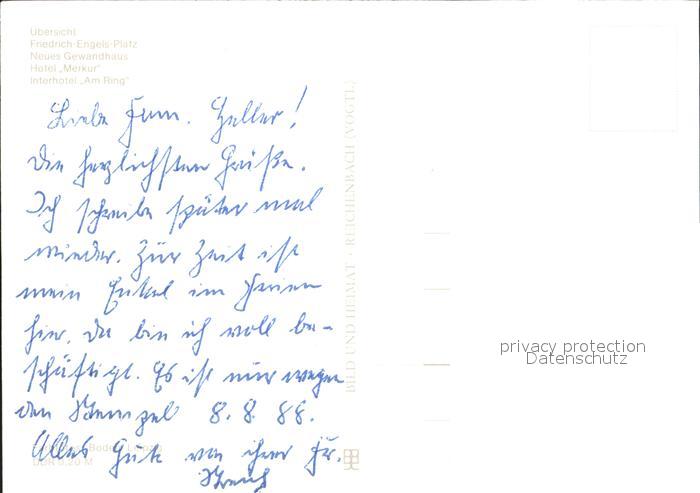 Übersicht
Friedrich-Engels-Platz
Neues Gewandhaus
Hotel „Merkur"
Interhotel „Am Ring"
Liebe Fam. Zeller!
Die herzlichsten Grüße.
Ich schreibe später mal
wieder. Zur Zeit ist
mein Enkel im Ferien
hier. Da bin ich voll be-
schäftigt. Es ist nur wegen
den Stempel 8.8.88.
Alles Gute von ihrer Fr.
BILD UND HEIMAT · REICHENBACH (VOGTL.)
privacy protection
Datenschutz